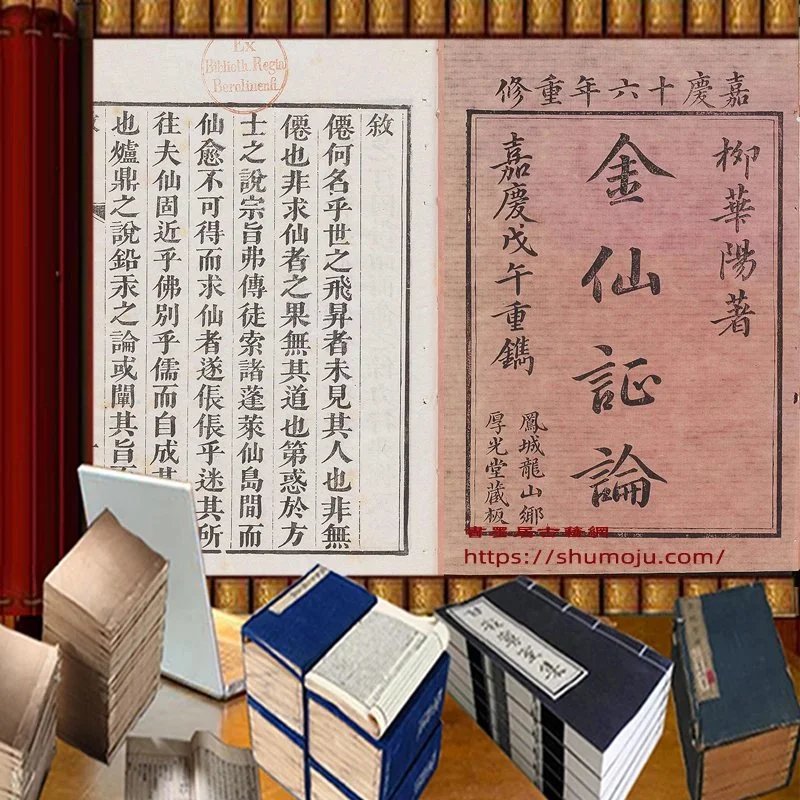 嘉慶十六年重修
柳華陽著
金仙証論
嘉慶戊午重鐫
鳳城龍山鄉
厚光堂藏板
書墨居古籍網
https://shumoju.com/
Ex
Biblioth. Regia
Berolinensi.
敘
僊何名乎世之飛昇者未見其人也非無
僊也非求仙者之果無其道也第惑於方
士之說宗旨弗傳徒索諸蓬萊仙島間而
仙愈不可得而求仙者遂倀倀乎迷其所
往夫仙固近乎佛別乎儒而自成其
也爐鼎之說鉛汞之論或闡其旨